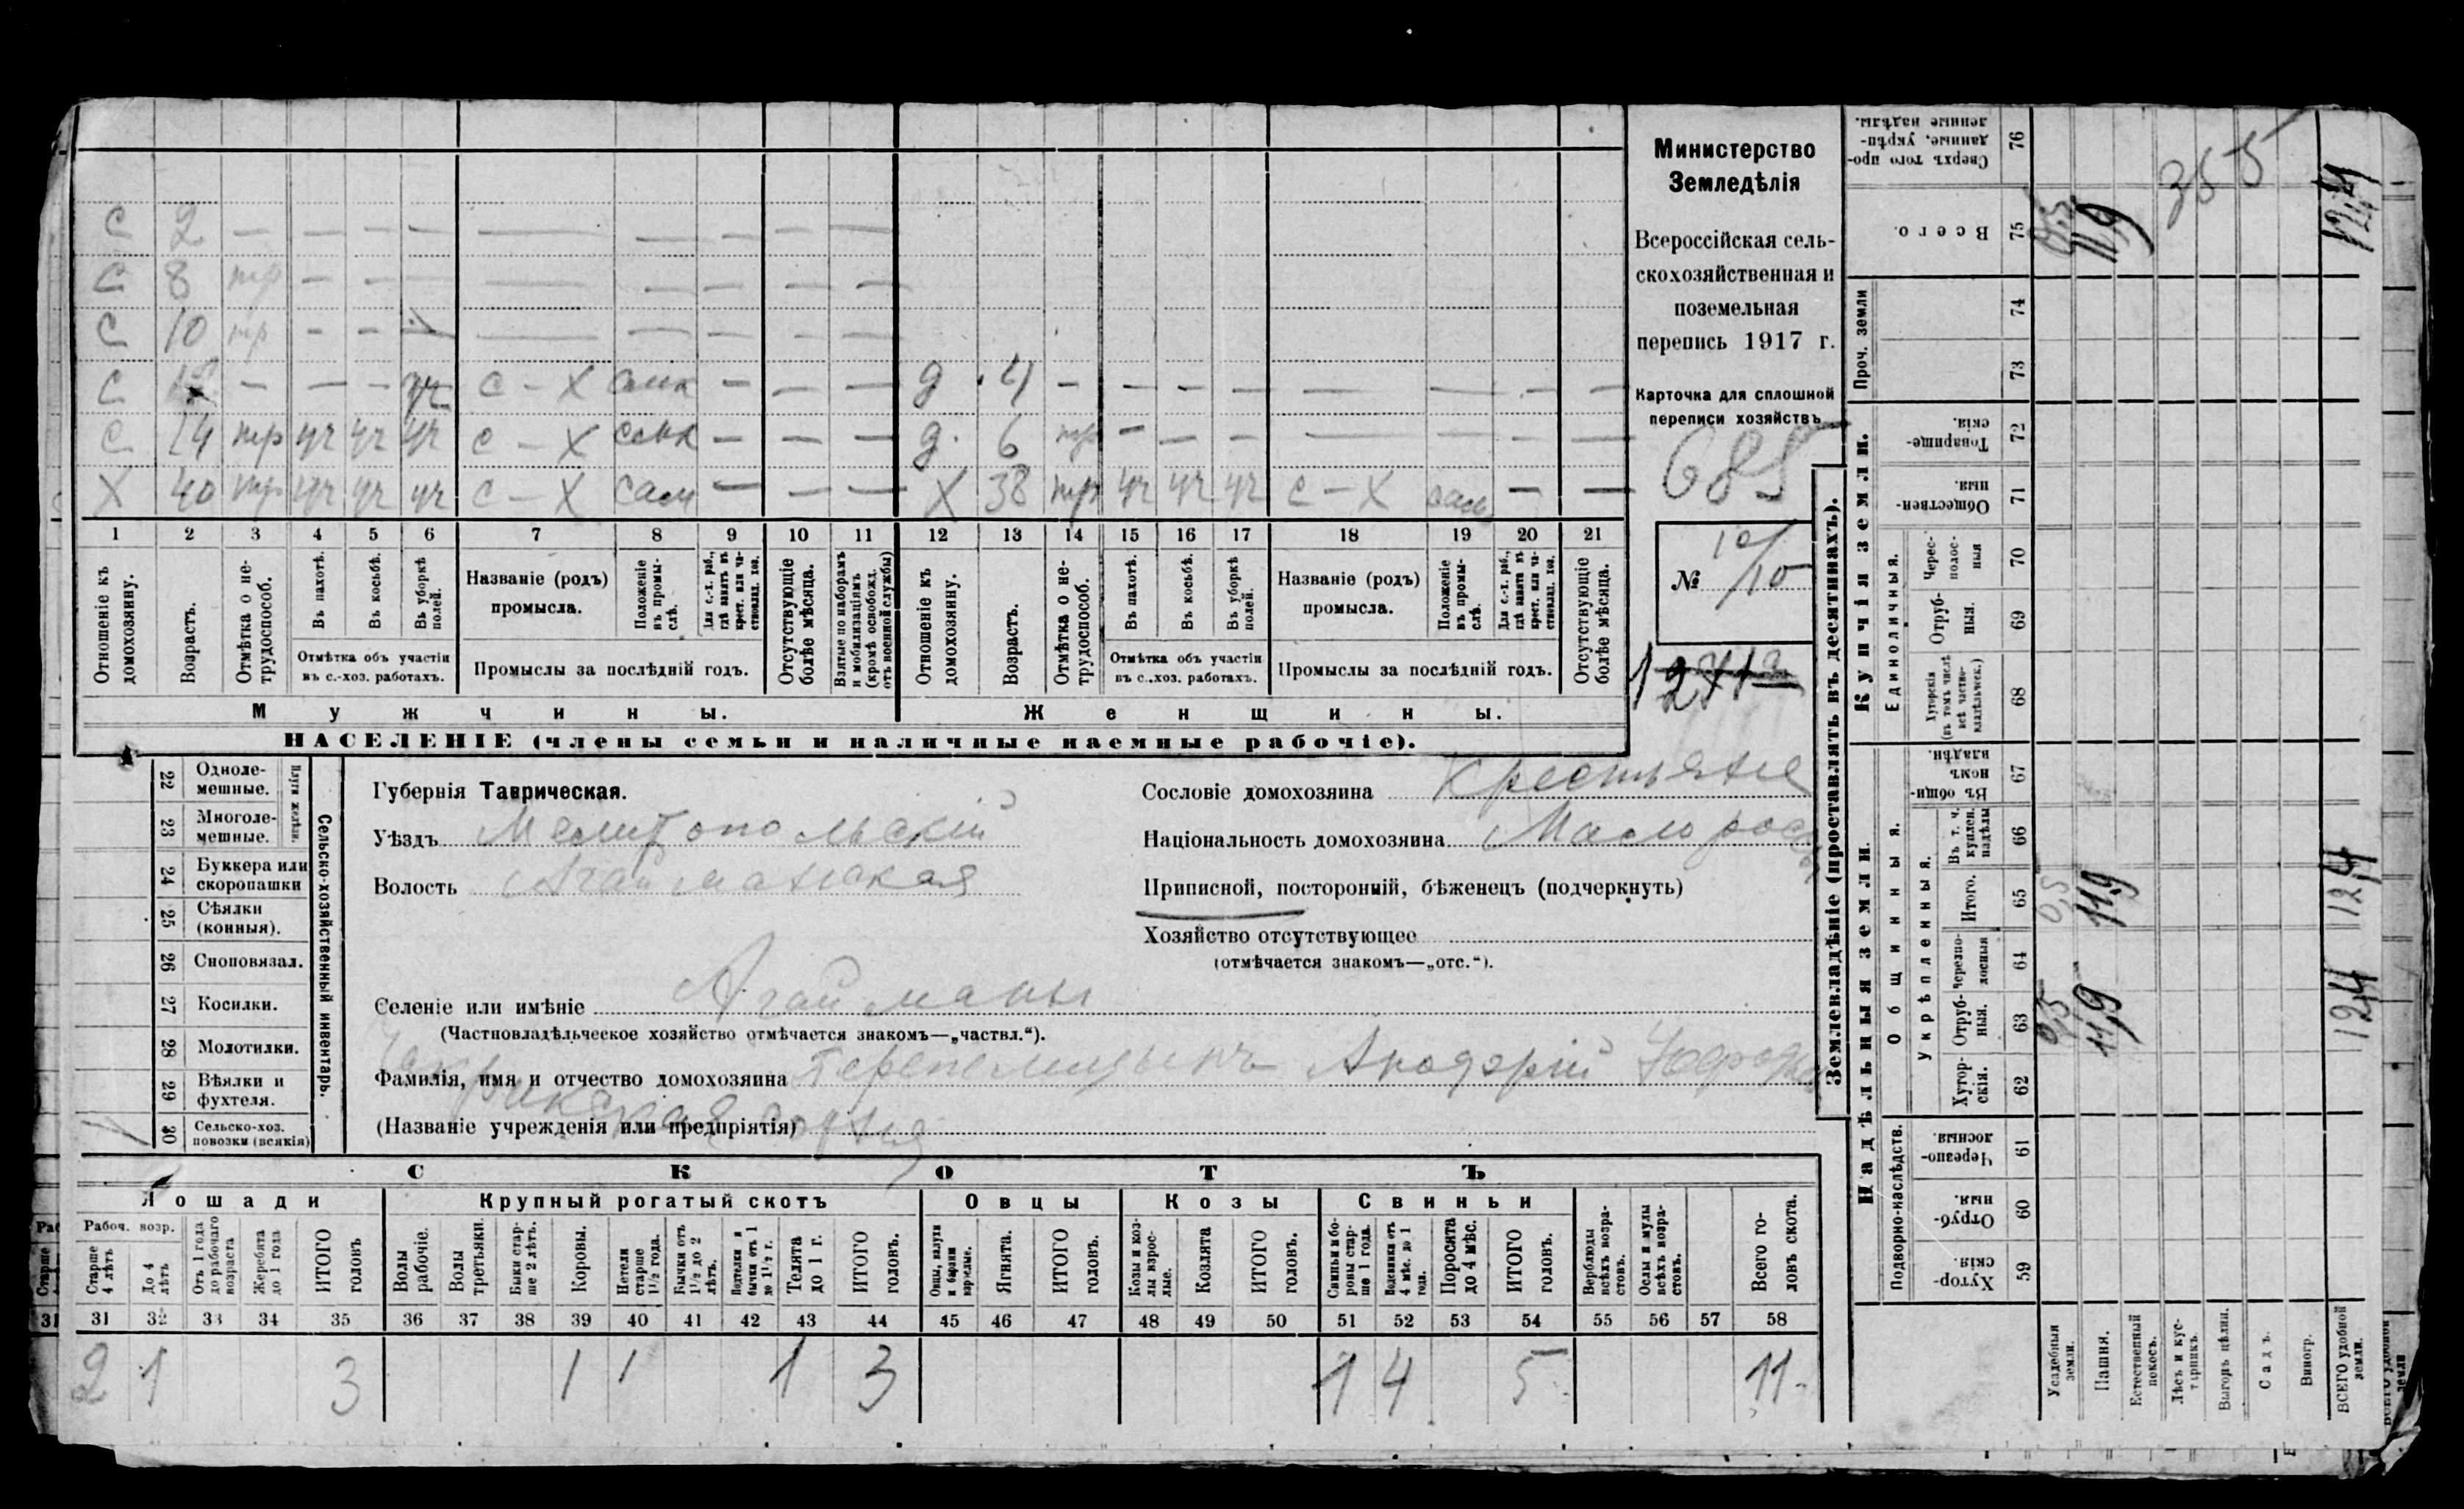 С 2 — — — — — — — — —
С 8 тр — — — — — — — —
С 10 тр — — — — — — — —
С — — — уч С - Х самк — — — д. 4 — — — — — — — —
С 14 тр уч уч уч С - Х самк — — — д. 6 тр — — — — — — —
Х 40 тр уч уч уч С - Х сам — — — Х 38 тр уч уч уч С - Х сам — —
1 2 3 4 5 6 7 8 9 10 11 12 13 14 15 16 17 18 19 20 21
Отношеніе къ домохозяину.
Возрастъ.
Отмѣтка о не-трудоспособ.
Въ пахотѣ.
Въ косьбѣ.
Въ уборкѣ полей.
Отмѣтка объ участіи
въ с.-хоз. работахъ.
Названіе (родъ)
промысла.
Положеніе въ промы-слѣ.
Для с.-х. раб., гдѣ занятъ въ крест. или ча-стновлад. хоз.
Промыслы за послѣдній годъ.
Отсутствующіе болѣе мѣсяца.
Взятые по наборамъ и мобилизаціямъ (кромѣ освобожд. отъ военной службы)
Отношеніе къ домохозяину.
Возрастъ.
Отмѣтка о не-трудоспособ.
Въ пахотѣ.
Въ косьбѣ.
Въ уборкѣ полей.
Отмѣтка объ участіи
въ с.-хоз. работахъ.
Названіе (родъ)
промысла.
Положеніе въ промы-слѣ.
Для с.-х. раб., гдѣ занята въ крест. или ча-стновлад. хоз.
Промыслы за послѣдній годъ.
Отсутствующіе болѣе мѣсяца.
Мужчины.
Женщины.
НАСЕЛЕНІЕ (члены семьи и наличные наемные рабочіе).
Министерство
Земледѣлія
Всероссійская сель-
скохозяйственная и
поземельная
перепись 1917 г.
Карточка для сплошной
переписи хозяйствъ
685
№ 10/10
22 Одноле-
мешные.
23 Многоле-
мешные.
Плуги желѣзн.
24 Буккера или
скоропашки
25 Сѣялки
(конныя).
26 Сноповязал.
27 Косилки.
28 Молотилки.
29 Вѣялки и
фухтеля.
30 Сельско-хоз.
повозки (всякія)
1
Сельско-хозяйственный инвентарь.
Губернія Таврическая.
Уѣздъ Мелитопольскій
Волость Агайманская
Селеніе или имѣніе Агайманы
(Частновладѣльческое хозяйство отмѣчается знакомъ—„частвл.“).
Фамилія, имя и отчество домохозяина
(Названіе учрежденія или предпріятія)
Сословіе домохозяина Крестьяне
Національность домохозяина Малоросс
Приписной, посторонній, бѣженецъ (подчеркнуть)
Хозяйство отсутствующее
(отмѣчается знакомъ—„отс.“).
СКОТЪ
Лошади
Крупный рогатый скотъ
Овцы
Козы
Свиньи
Рабоч. возр.
Старше 4 лѣтъ
До 4 лѣтъ
Отъ 1 года до рабочаго возраста
Жеребята до 1 года
ИТОГО головъ
Волы рабочіе.
Волы третьяки.
Быки стар-ше 2 лѣтъ.
Коровы.
Нетели старше 1½ года.
Бычки отъ 1½ до 2 лѣтъ.
Подтелки и бычки отъ 1 до 1½ г.
Телята до 1 г.
ИТОГО головъ.
Овцы, валухи и бараны взрослые.
Ягнята.
ИТОГО головъ.
Козы и коз-лы взрос-лые.
Козлята
ИТОГО головъ.
Свиньи и бо-ровы стар-ше 1 года.
Подсвинки отъ 4 мѣс. до 1 года.
Поросята до 4 мѣс.
ИТОГО головъ.
Верблюды всѣхъ возра-стовъ.
Ослы и мулы всѣхъ возра-стовъ.
Всего го-ловъ скота.
31 32 33 34 35 36 37 38 39 40 41 42 43 44 45 46 47 48 49 50 51 52 53 54 55 56 57 58
2 1 3 1 1 1 3 1 4 5 11
Землевладѣніе (проставлять въ десятинахъ).
Надѣльныя земли.
Купчія земли.
Проч. земли
Подворно-наслѣдств.
Общинныя.
Укрѣпленныя.
Единоличныя.
76 Сверхъ того про-данные, укрѣп-ленные надѣлы.
75 Всего.
74
73
72 Товарище-скія.
71 Обществен-ныя.
70 Черес-полос-ныя
69 Отруб-ныя.
68 Хуторскія (въ томъ числѣ всѣ частно-владѣльческ.)
67 Въ общи-номъ владѣн.
66 Въ т. ч. куплен. надѣлы
65 Итого.
64 Черезпо-лосныя
63 Отруб-ныя.
62 Хутор-скія.
61 Черезпо-лосныя.
60 Отруб-ныя.
59 Хутор-скія.
Усадебныя земли.
0,5 0,5 0,5
Пашня.
11,9 11,9 11,9
Естественный покосъ.
Лѣсъ и кус-тарникъ.
355
Выгонъ цѣлин.
Садъ.
Виногр.
ВСЕГО удобной земли.
12,4 12,4 12,4